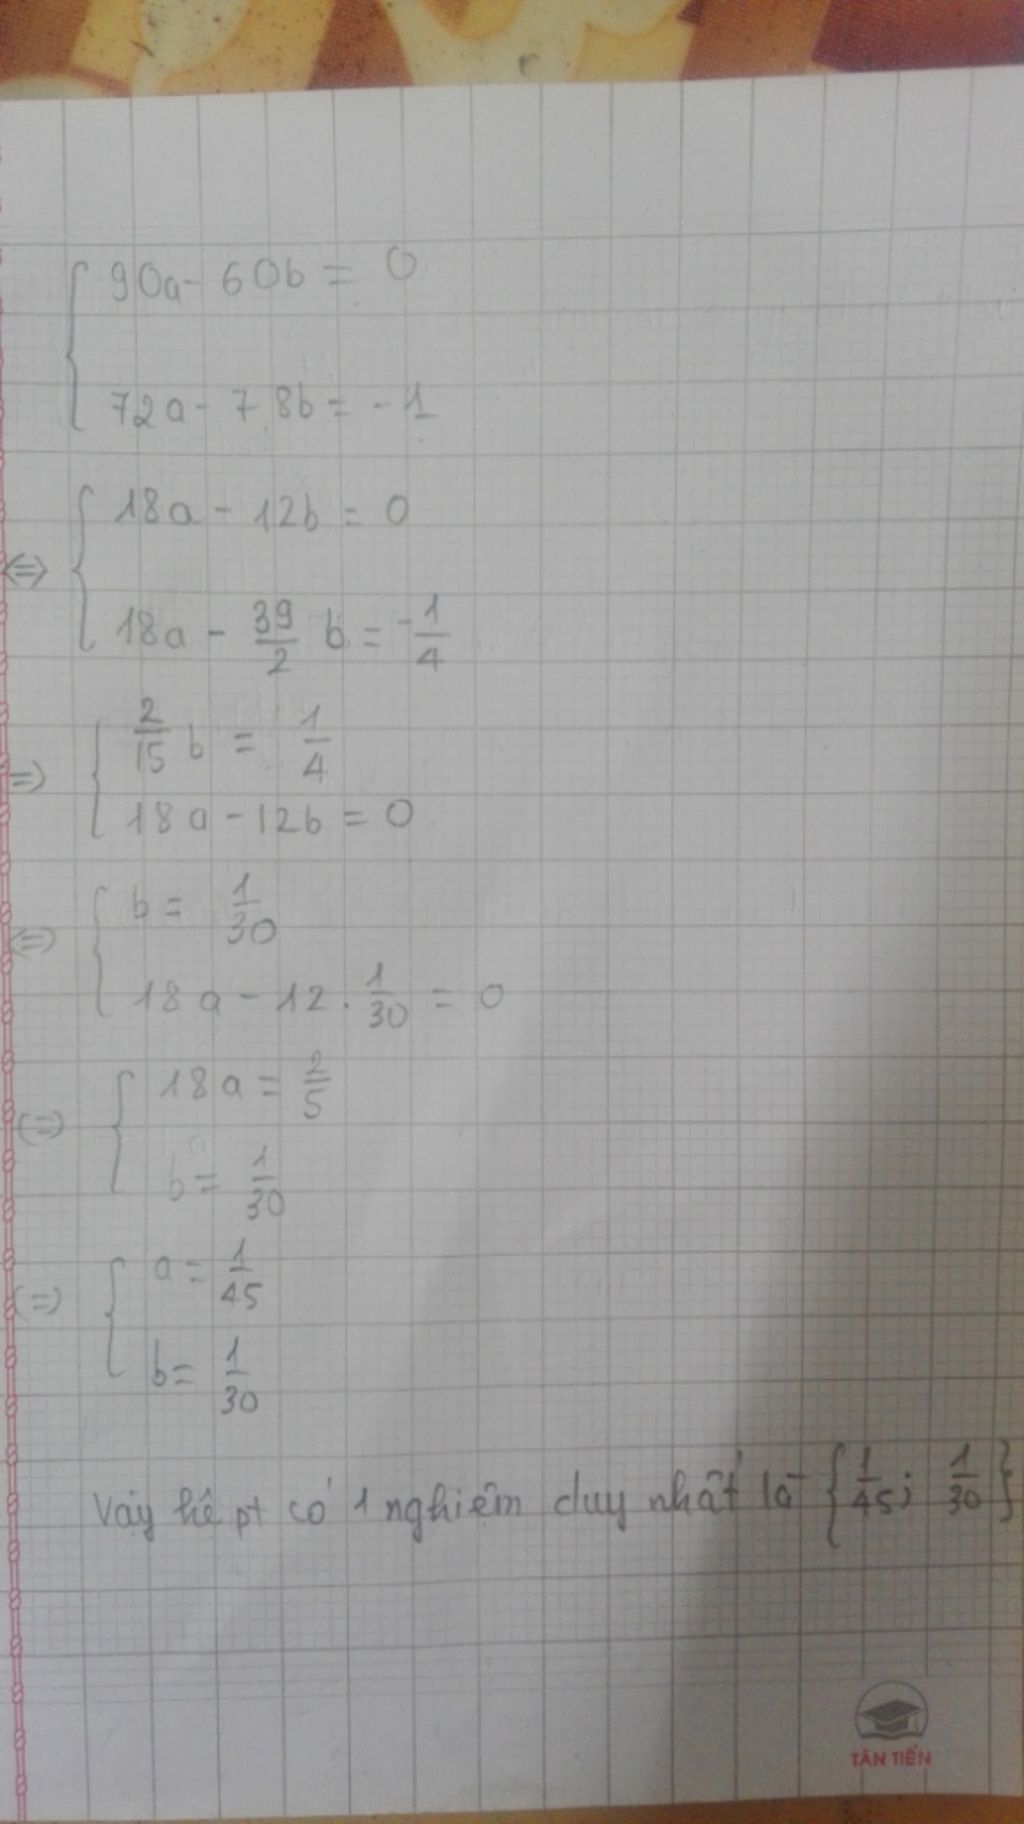 90a - 60b = 0
72a - 78b = -1
⇔ 18a - 12b = 0
18a - 39/2 b = -1/4
=) 2/15 b = 1/4
18a - 12b = 0
(=) b = 1/30
18a - 12 . 1/30 = 0
(=) 18a = 2/5
b = 1/30
(=) a = 1/45
b = 1/30
Vậy hệ pt có 1 nghiệm duy nhất là {1/45; 1/30}
TÂN TIẾN